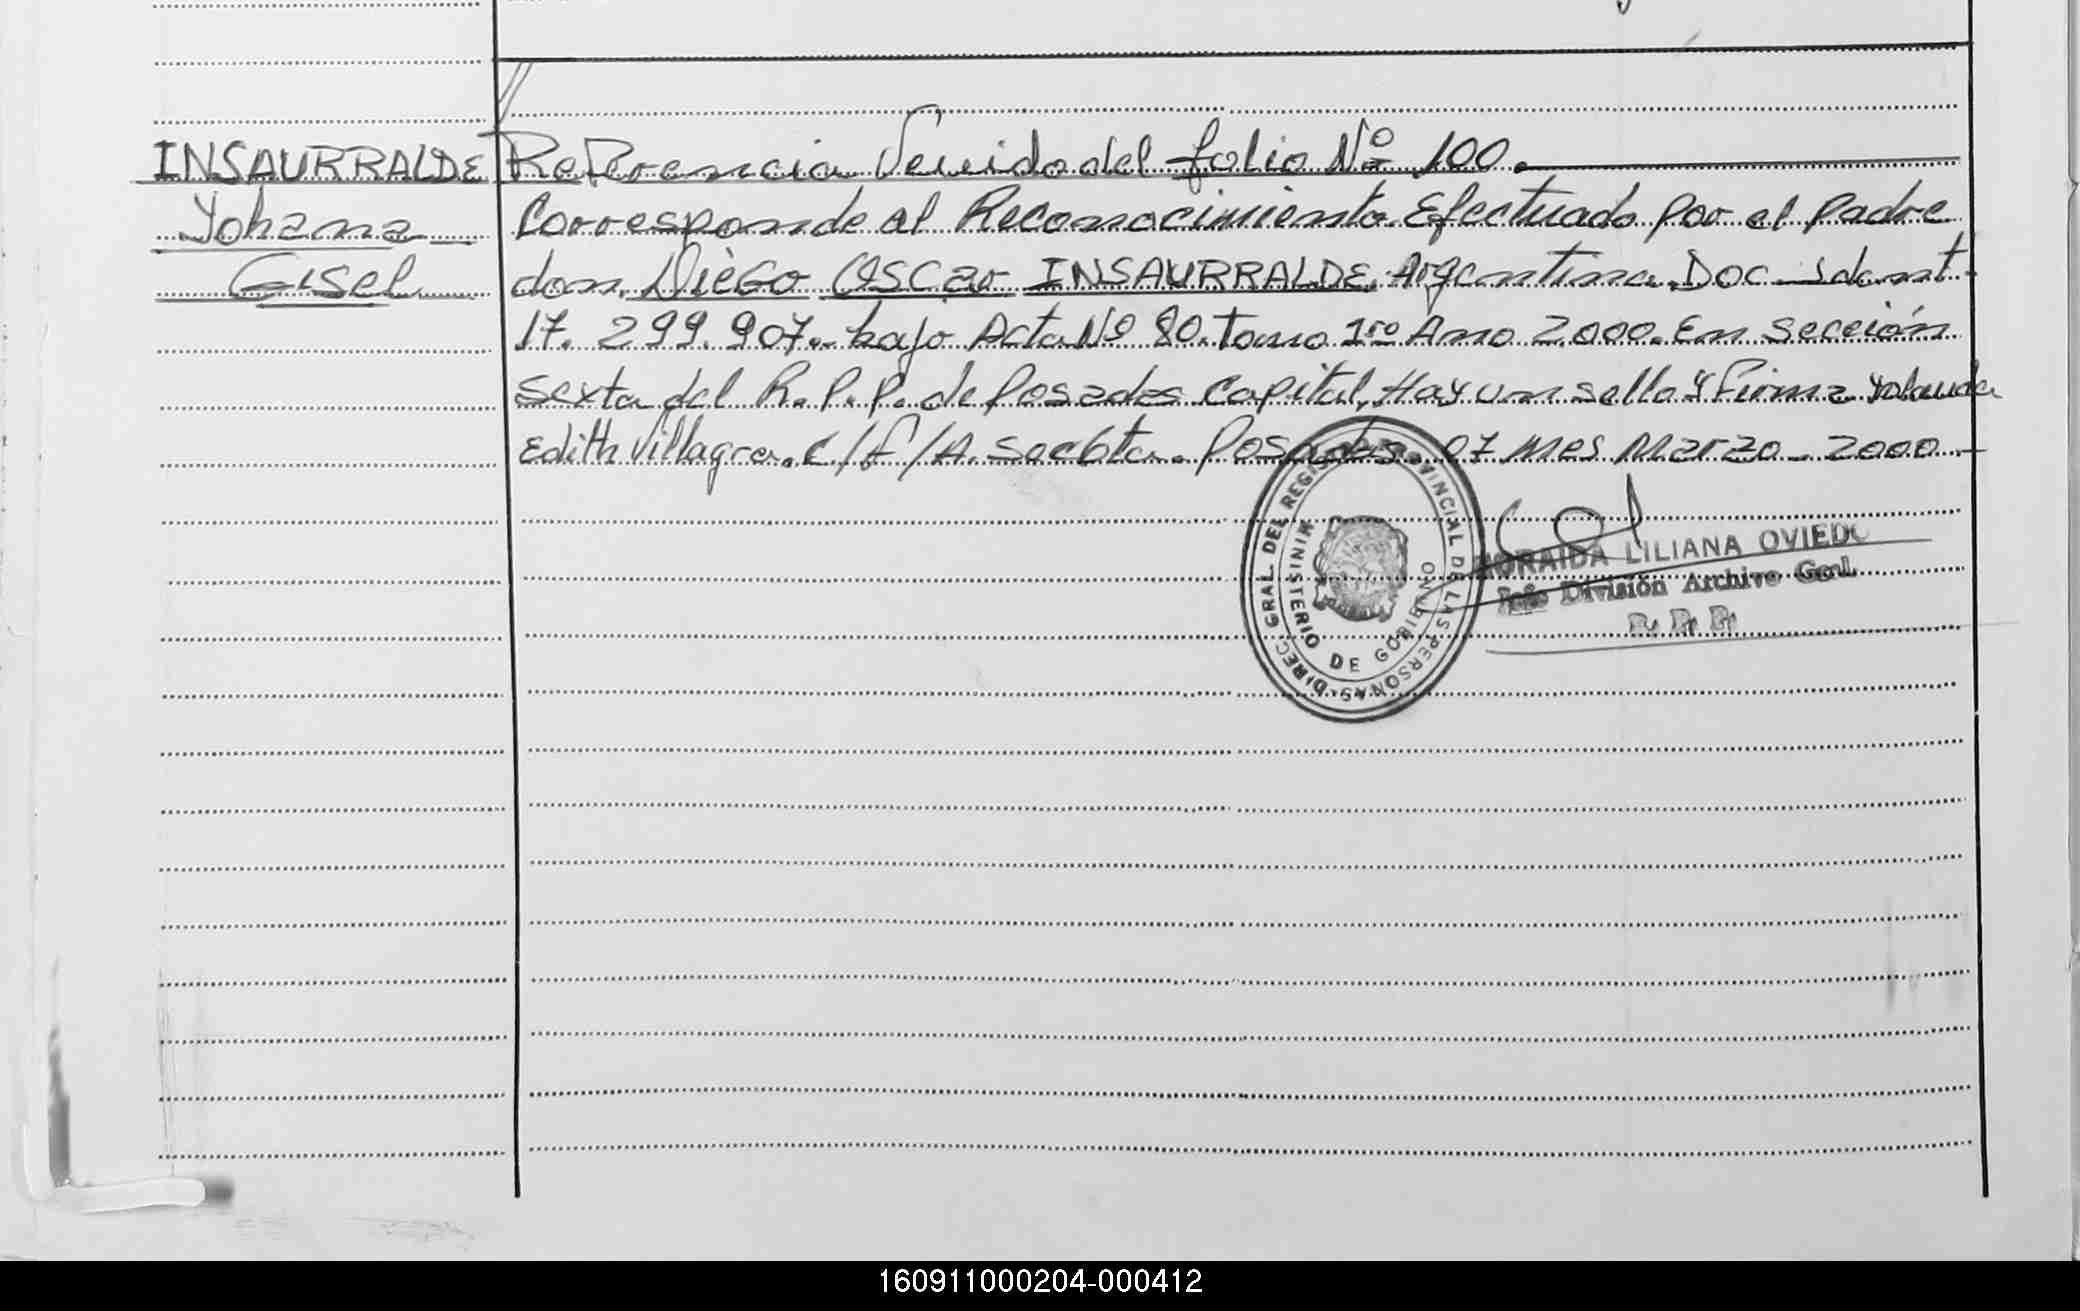 INSAURRALDE
Yohana
Gisel
Referencia Venido del folio Nº 100.
Corresponde al Reconocimiento Efectuado por el padre
don Diego Oscar INSAURRALDE. Argentino. Doc. Ident.
17.299.907. bajo Acta Nº 80. Tomo 1ro Ano 2.000. En Sección
sexta del R.P.P. de Posadas Capital. Hay un sello y Firma Yolanda
Edith Villagra. C/f/A. Posadas 07 mes Marzo - 2000 -
DIREC. GRAL. DEL REGISTRO PROVINCIAL DE LAS PERSONAS
MINISTERIO DE GOBIERNO
LILIANA OVIEDO
Jefe División Archivo Gral.
R. P. P.
160911000204-000412